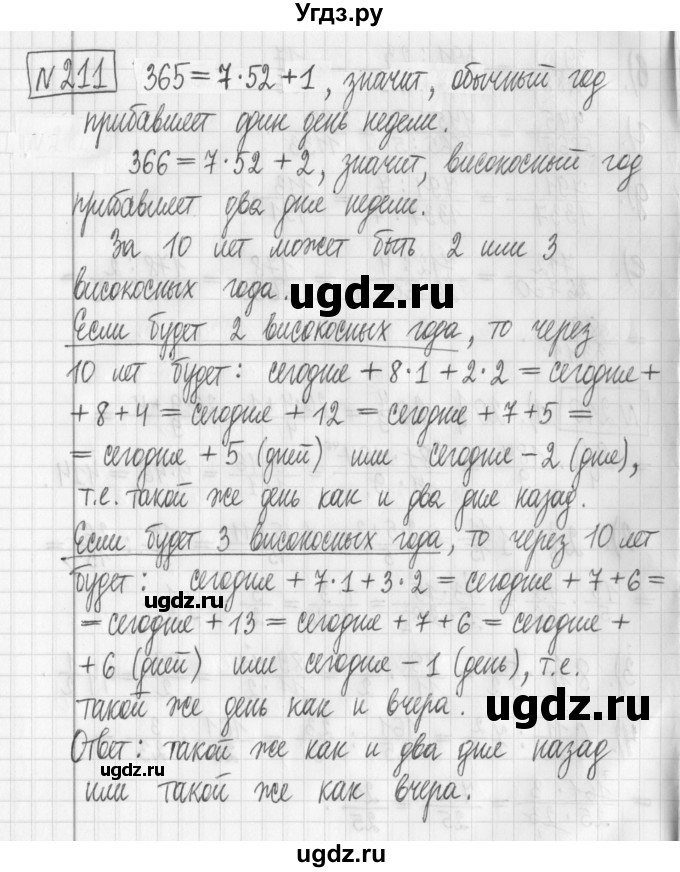 Угдз.ру
№ 211 365 = 7·52 + 1, значит, обычный год
прибавляет один день недели.
366 = 7·52 + 2, значит, високосный год
прибавляет два дня недели.
За 10 лет может быть 2 или 3
високосных года.
ugdz.ru
Если будет 2 високосных года, то через
10 лет будет: сегодня + 8·1 + 2·2 = сегодня +
+ 8 + 4 = сегодня + 12 = сегодня + 7 + 5 =
= сегодня + 5 (дней) или сегодня - 2 (дня),
т.е. такой же день как и два дня назад.
Если будет 3 високосных года, то через 10 лет
будет: сегодня + 7·1 + 3·2 = сегодня + 7 + 6 =
ugdz.ru
= сегодня + 13 = сегодня + 7 + 6 = сегодня +
+ 6 (дней) или сегодня - 1 (день), т.е.
такой же день как и вчера.
ugdz.ru
Ответ: такой же как и два дня назад
ugdz.ru
или такой же как вчера.
ugdz.ru